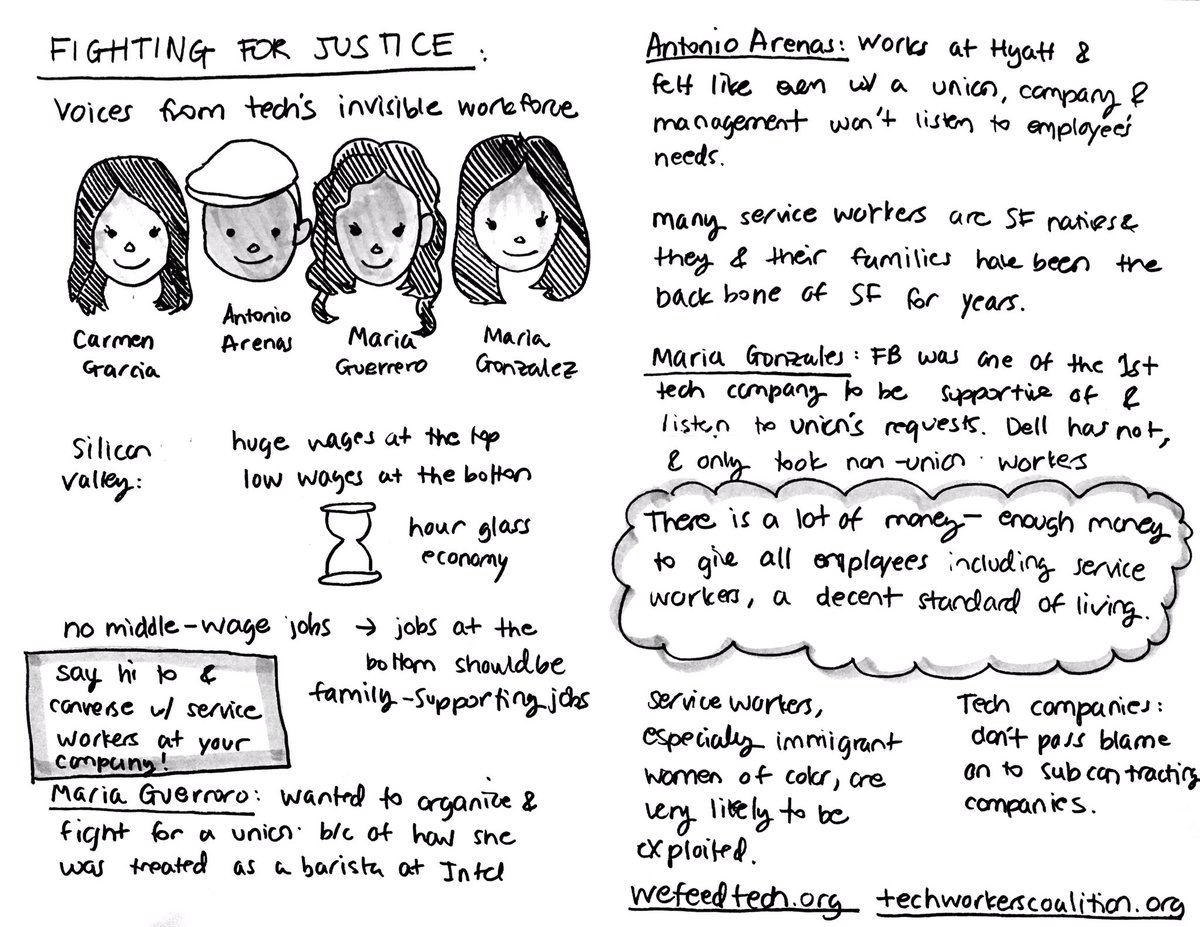 FIGHTING FOR JUSTICE:
Voices from tech's invisible workforce
Carmen
Garcia
Antonio
Arenas
Maria
Guerrero
Maria
Gonzalez
Silicon
Valley:
huge wages at the top
low wages at the bottom
hour glass
economy
no middle-wage jobs → jobs at the
bottom should be
family-supporting jobs
say hi to &
converse w/ service
workers at your
company!
Maria Guerroro: wanted to organize &
fight for a union b/c of how she
was treated as a barista at Intel
Antonio Arenas: Works at Hyatt &
felt like even w/ a union, company &
management won't listen to employee's
needs.
many service workers are SF natives &
they & their families have been the
back bone of SF for years.
Maria Gonzales: FB was one of the 1st
tech company to be supportive of &
listen to union's requests. Dell has not,
& only took non-union workers
There is a lot of money- enough money
to give all employees including service
workers, a decent standard of living.
service workers,
especially immigrant
women of color, are
very likely to be
exploited.
Tech companies:
don't pass blame
on to subcontracting
companies.
wefeedtech.org techworkerscoalition.org